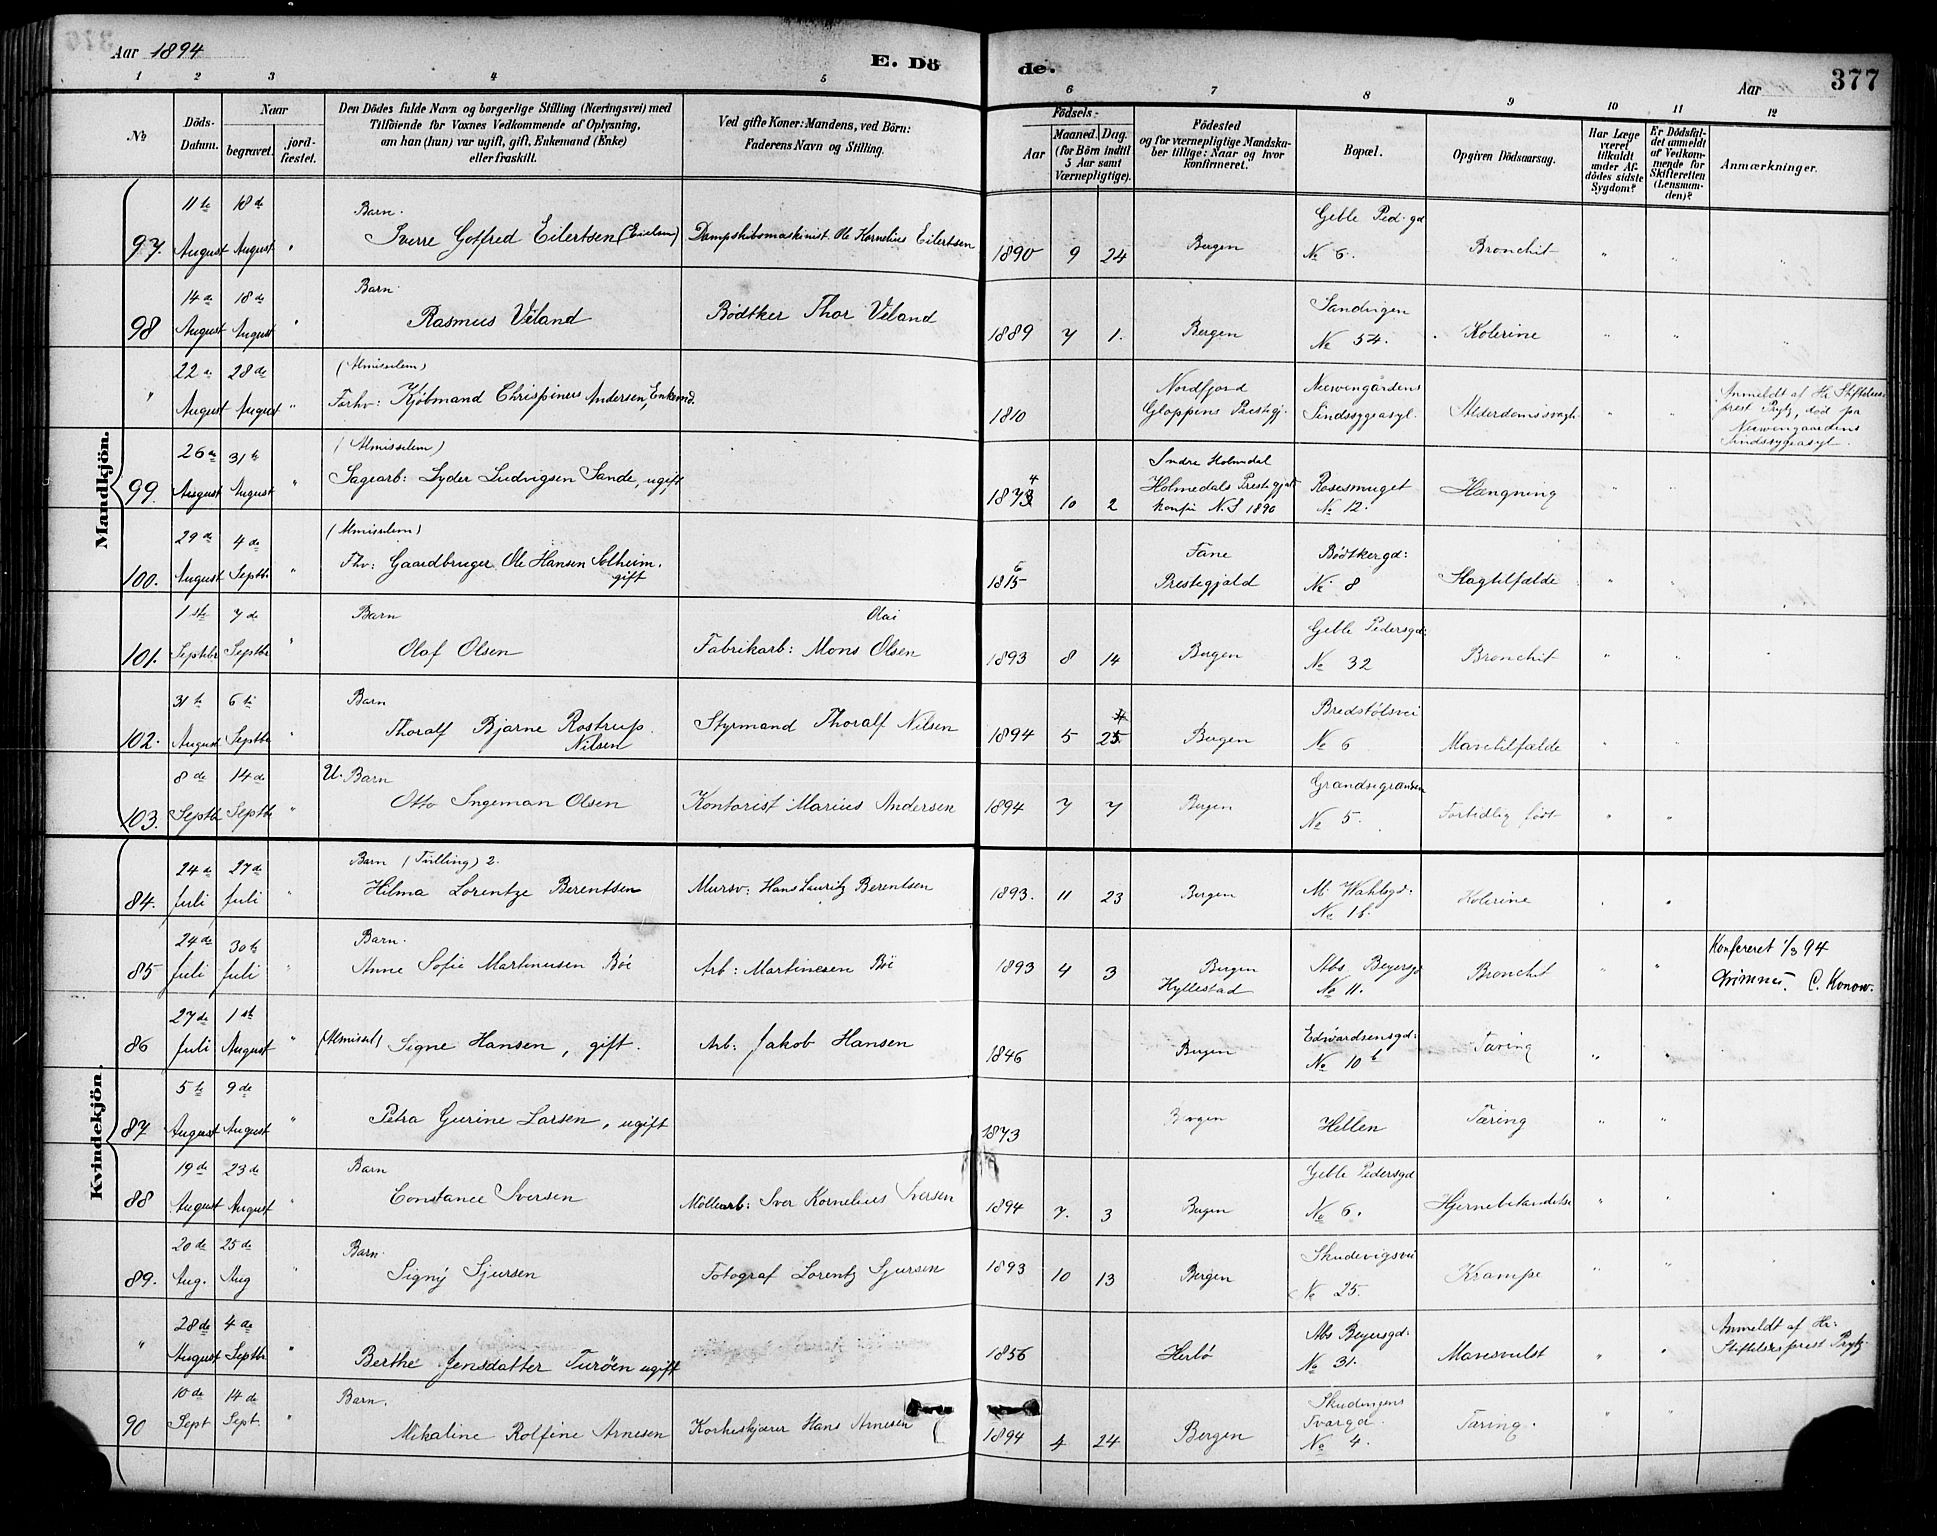 Aar 1894
E. Dö
de.
Aar
377
1 2 3 4 5 6 7 8 9 10 11 12
No
Döds-Datum.
Naar
begravet.
jord-fæstet.
Den Dödes fulde Navn og borgerlige Stilling (Næringsvei) med
Tilföiende for Voxnes Vedkommende af Oplysning,
om han (hun) var ugift, gift, Enkemand (Enke)
eller fraskilt.
Ved gifte Koner: Mandens, ved Börn:
Faderens Navn og Stilling.
Födsels-
Aar
Maaned. Dag.
(for Börn indtil
5 Aar samt
Værnepligtige).
Födested
og for værnepligtige Mandska-
ber tillige: Naar og hvor
konfirmeret.
Bopæl.
Opgiven Dödsaarsag.
Har Læge
været
tilkaldt
under Af-
dödes sidste
Sygdom?
Er Dödsfal-
det anmeldt
af Vedkom-
mende for
Skifteretten
(Lensman-
den)?
Anmærkninger.
Mandkjön.
97. 11te August 18de August " Barn. Sverre Gotfred Eilertsen (Eielsen) Dampskibsmaskinist Ole Kornelius Eilertsen 1890 9 24 Bergen Geble Ped. gd No 6. Bronchit " " "
98 14de August 18de August " Barn. Rasmus Veland Bödtker Thor Veland 1889 7 1. Bergen Sandvigen No 54. Kolerine " " "
" 22de August 28de August " (Almisselem) Forhv: Kjöbmand Chrispinus Andersen, Enkemd. 1810 Nordfjord Gloppens Prestegj. Neevengårdens Sindssygeasyl. Alderdomssvagh. Anmeldt af Hr. Stiftelses-prest Prytz, död på Neevengaardens Sindssygeasyl.
99. 26de August 31te August " (Almisselem) Sagearb: Lyder Ludvigsen Sande, ugift 1873 4 10 2 Indre Holmedal Holmedals Prestegjæld konfir N. S 1890 Rosesmuget No 12. Hængning " "
100. 29de August 4de Septbr " (Almisselem) Fhv: Gaardbruger Ole Hansen Solheim, gift 1815 6 Fane Prestegjæld Bödtkergd: No 8 Slagtilfælde " "
101. 1ste Septbr 7de Septbr " Barn Olaf Olsen Fabrikarb: Mons Olai Olsen 1893 8 14 Bergen Geble Pedersgd: No 32 Bronchit " "
102. 31te August 6te Septbr " Barn Thoralf Bjarne Rostrup Nilsen Styrmand Thoralf Nilsen 1894 5 25 Bergen Bredstölsvei No 6 Mavetilfælde " "
103. 8de Septbr 14de Septbr " U. Barn Otto Ingeman Olsen Kontorist Marius Andersen 1894 7 7 Bergen No 5. Fortidlig födt " "
Kvindekjön.
84. 24de Juli 27de Juli " Barn (Tvilling) 2. Hilma Lorentze Berentsen Mursv: Hans Lauritz Berentsen 1893. 11 23 Bergen M. Wahlsgd: No 16. Kolerine " "
85 24de Juli 30te Juli " Barn. Anne Sofie Martinusen Böe Arb: Martinesen Böe 1893 4 3 Bergen Hyllestad Abs Beyersgd No 11. Bronchit " " Konfereret 1/8 94 Grimnes. C. Konow.
86 27de Juli 1st August " (Almissel) Signe Hansen, gift. Arb: Jakob Hansen 1846 Bergen Edvardsensgd: No 10b Tæring " "
87 5te August 9de August " Petra Gurine Larsen, ugift 1873 Bergen Hellen Tæring " "
88 19de August 23de August " Barn Constance Iversen Möllearb: Iver Kornelius Iversen 1894 7. 3 Bergen Geble Pedersgd No 6. Hjernebetændelse " "
89. 20de Aug. 25de Aug " Barn. Signy Sjursen Fotograf Lorentz Sjursen 1893 10 13 Bergen Skudevigsvei No 25. Krampe " "
" 28de August 4de Septbr " Berthe Jensdatter Turöen ugift 1856 Herlö Abs Beyersgd: No 31. Mavesvulst " " Anmeldt af Hr: Stiftelsesprest Prytz
90 10de Sept 14de Sept. " Barn. Mikaline Rolfine Arnesen Korkeskjærer Hans Arnesen 1894 4 24 Bergen Tvergd. No 4. Tæring. " "